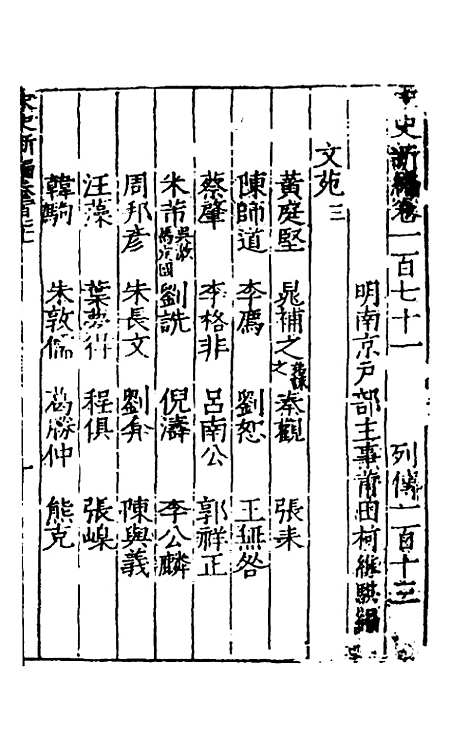 宋史新編卷一百七十一 列傳一百十三
明南京戶部主事莆田柯維騏編
文苑三
黃庭堅 晁補之 詠之 秦觀 張耒
陳師道 李廌 劉恕 王無咎
蔡肇 李格非 呂南公 郭祥正
米芾 吳激 馬定國 劉詵 倪濤 李公麟
周邦彥 朱長文 劉弇 陳與義
汪藻 葉夢得 程俱 張嵲
韓駒 朱敦儒 葛勝仲 熊克
宋史新編卷一百七十一
一